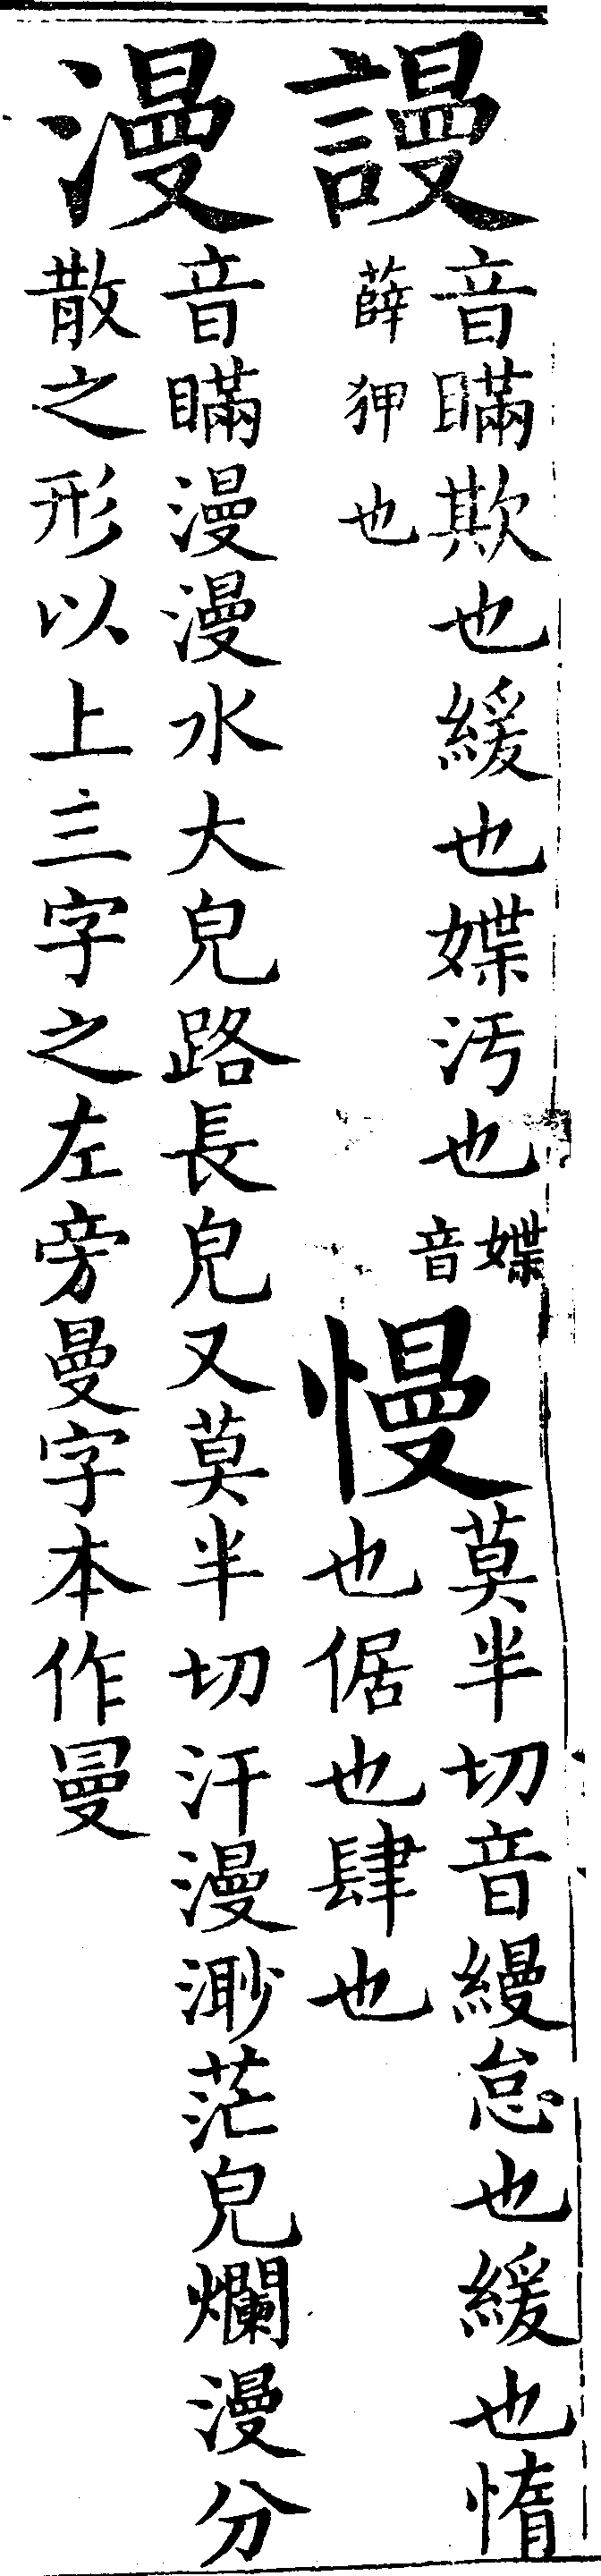 謾
音瞞欺也緩也媟汚也媟音
薛狎也
慢
莫半切音縵怠也緩也惰
也倨也肆也
漫
音瞞漫漫水大皃路長皃又莫半切汗漫渺茫皃爛漫分
散之形以上三字之左旁曼字本作㬅